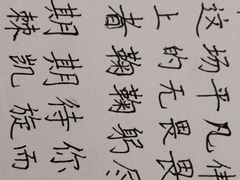 这场平凡伟
上的无畏畏
者鞠鞠躬尽
期期待你
棘凯旋而